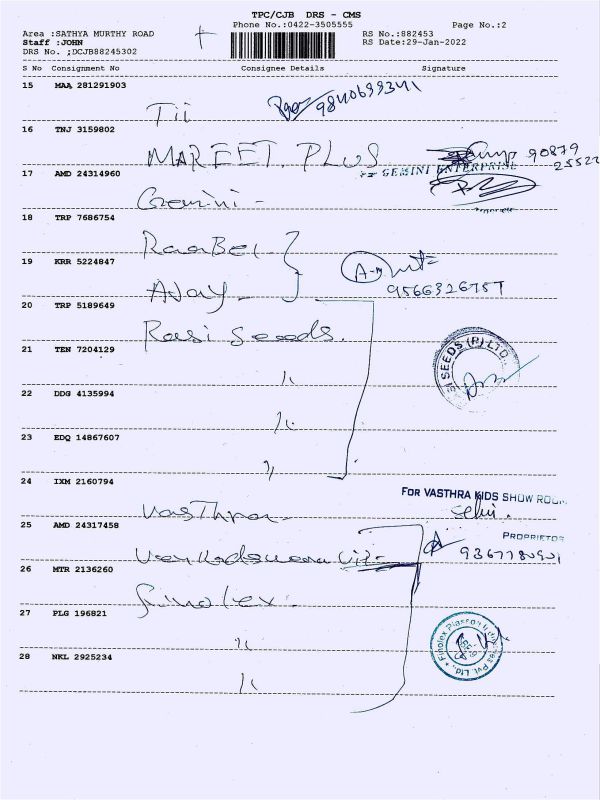 TPC/CJB DRS - CMS
Phone No.:0422-3505555
Page No.:2
Area :SATHYA MURTHY ROAD
RS No.:882453
Staff :JOHN
RS Date:29-Jan-2022
DRS No. ;DCJB88245302
S No Consignment No Consignee Details Signature
15 MAA 281291903
Tii 9840699341
16 TNJ 3159802
MAREET. PLUS 90879
25522
17 AMD 24314960
GEMINI ENTERPRISE
Gemini -
18 TRP 7686754
19 KRR 5224847
AJay -
9566326757
20 TRP 5189649
Rasi Seeds.
21 TEN 7204129
SEEDS (P) LTD.
"
22 DDG 4135994
"
23 EDQ 14867607
"
24 IXM 2160794
FOR VASTHRA KIDS SHOW ROOM
Vasthra -
25 AMD 24317458
PROPRIETOR
26 MTR 2136260
Finolex.
27 PLG 196821
"
28 NKL 2925234
"